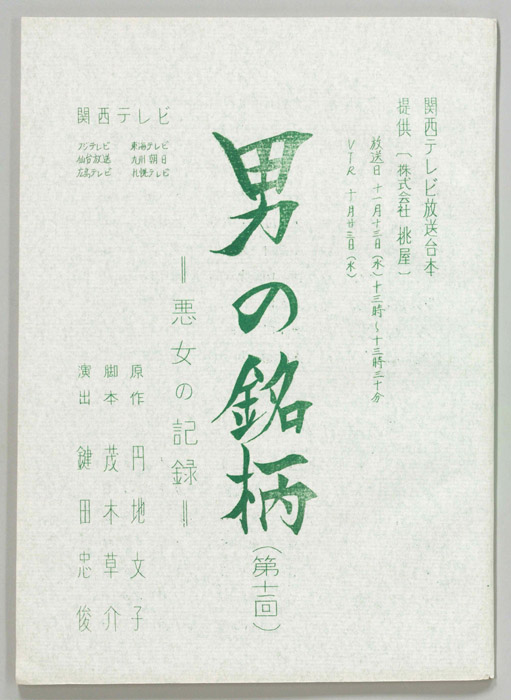 関西テレビ放送台本
提供〔株式会社 桃屋〕
放送日 十一月十三日(水)十三時～十三時三十分
VTR 十月廿三日(水)
男の銘柄(第十一回)
＝悪女の記録＝
関西テレビ
フジテレビ 東海テレビ
仙台放送 九州朝日
広島テレビ 札幌テレビ
原作 円地文子
脚本 茂木草介
演出 鍵田忠俊